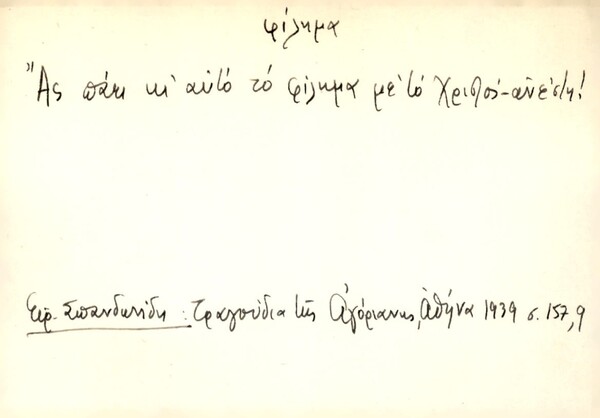 φίλημα
Ἂς πάῃ κι' αὐτό τό φίλημα μέ τό Χριστός-ἀνέστη!
Εἰρ. Σπανδωνίδη: Τραγούδια τῆς Ἀγόριανης, Ἀθήνα 1939 σ. 157,9